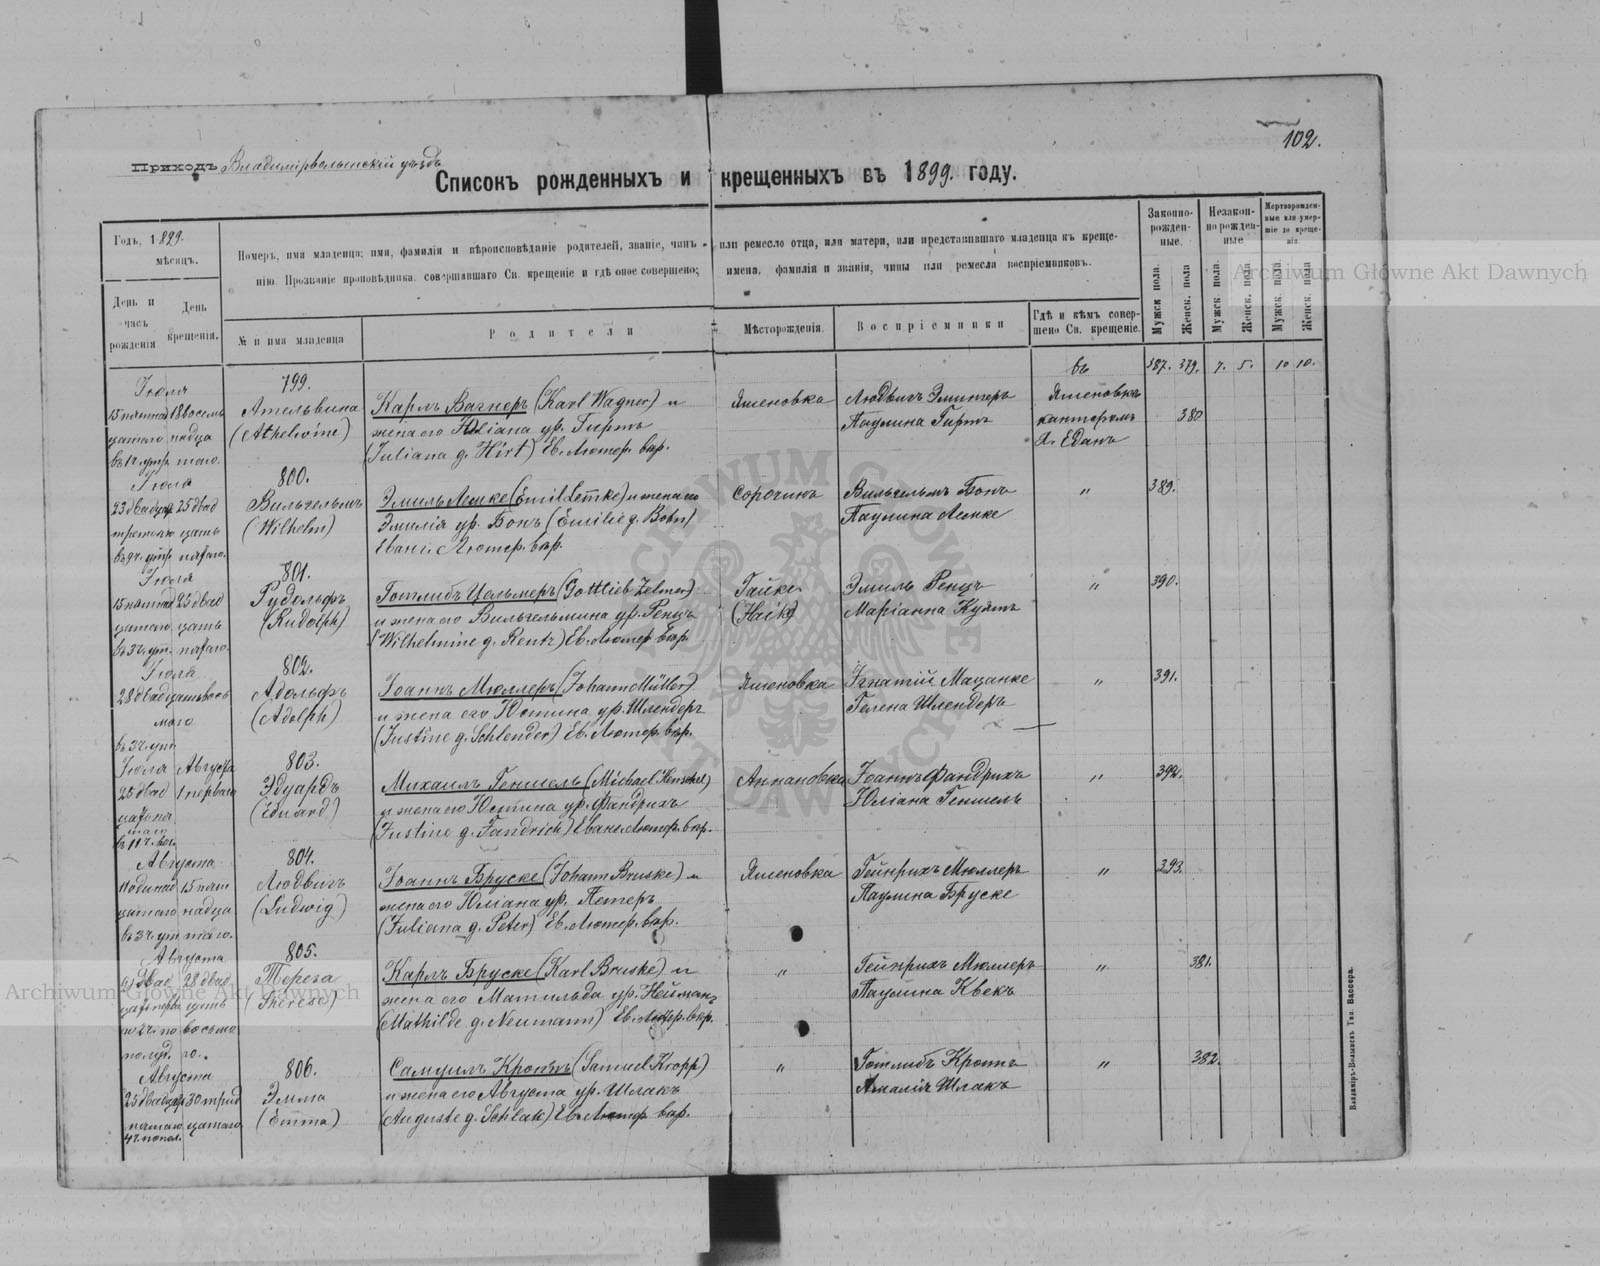 102.
Приходъ Владимірволынскій уѣздъ
Списокъ рожденныхъ и крещенныхъ въ 1899. году.
Годъ, 1899.
мѣсяцъ.
День и часъ рожденія
День крещенія.
Номеръ, имя младенца; имя, фамилія и вѣроисповѣданіе родителей, званіе, чинъ или ремесло отца, или матери, или представившаго младенца къ креще-
нію. Прозваніе проповѣдника, совершавшаго Св. крещеніе и гдѣ оное совершено; имена, фамилія и званія, чины или ремесла воспріемниковъ.
№ и имя младенца
Родители
Мѣсторожденія.
Воспріемники
Гдѣ и кѣмъ совер-
шено Св. крещеніе.
Законно-
рожден-
ные.
Незакон-
норожден-
ные
Мертворожден-
ные или умер-
шіе до креще-
нія.
Мужск пола.
Женск. пола
Мужск пола.
Женск. пола
Мужск. пола
Женск. пола
въ 387. 379. 7. 5. 10 10.
Іюля 799.
15 пятнад 18 восемь Ательвина Карлъ Вагнеръ (Karl Wagner) и Яменовка Людвигъ Яменовкѣ
цатаго надца (Athelwine) жена его Юліана ур. Гиртъ Паулина Гиртъ канторомъ 380
въ 1 ч. утр. таго. (Juliana g. Hirt) Ев. Лютер. вѣр.
Іюля 800.
23 двадца 25 двад Вильгельмъ Эмиль Лемке (Emil Lemke) и жена его Сорочинъ Вильгельмъ Бонъ " 389.
третьяго цать (Wilhelm) Эмилія ур. Бонъ (Emilie g. Bohn) Паулина Лемке
въ 9 ч. утр. пятаго. Еванг. Лютер. вѣр.
Іюля 801.
15 пятнад 25 двад Рудольфъ Готлибъ Цельмеръ (Gottlieb Zelmer) Гайке Эмиль Ренцъ " 390.
цатаго цать (Rudolph) и жена его Вильгельмина ур. Ренцъ Маріанна
въ 3 ч. утр. пятаго. (Wilhelmine g. Rentz) Ев. Лютер. вѣр.
Іюля 802.
28 двадцать вось Адольфъ Іоаннъ Мюллеръ (Johann Müller) Яменовка Игнатій Мацанке " 391.
маго (Adolph) и жена его Юстина ур. Шлендеръ Гелена Шлендеръ
въ 3 ч. утр. (Justine g. Schlender) Ев. Лютер. вѣр.
Іюля Августа 803.
25 двад 1 перваго Эдуардъ Михаилъ Геншель (Michael Henschel) Аннановка Іоаннъ Фандрихъ " 392.
цатопя (Eduard) и жена его Юстина ур. Фандрихъ Юліана Геншель
таго (Justine g. Fandrich) Еванг. Лютер. вѣр.
въ 11 ч.
Августа 804.
11 одиннад 15 пят Людвигъ Іоаннъ Бруске (Johann Bruske) и Яменовка Гейнрихъ Мюллеръ " 393.
цатаго надца (Ludwig) жена его Юліана ур. Петеръ Паулина Бруске
въ 3 ч. утр. таго. (Juliana g. Peter) Ев. Лютер. вѣр.
Августа 805.
двад 28 двад Тереза Карлъ Бруске (Karl Bruske) и " Гейнрихъ Мюллеръ " 381.
цать (Therese) жена его Матильда ур. Нейманъ Паулина Квекъ
по восьма (Mathilde g. Neumann) Ев. Лютер. вѣр.
полуд. го.
Августа 806.
25 двадца 30 трид Эмма Самуилъ Кроппъ (Samuel Kropp) " Готлибъ Кроппъ " 382.
пятаго цатаго (Emma) и жена его Августа ур. Шлакъ Амалія Шлакъ
4 ч. попол. (Auguste g. Schlak) Ев. Лютер. вѣр.
Владиміръ-Волынскъ Тип. Вассера.
Archiwum Główne Akt Dawnych
Archiwum Główne Akt Dawnych
ARCHIWUM GŁÓWNE AKT DAWNYCH